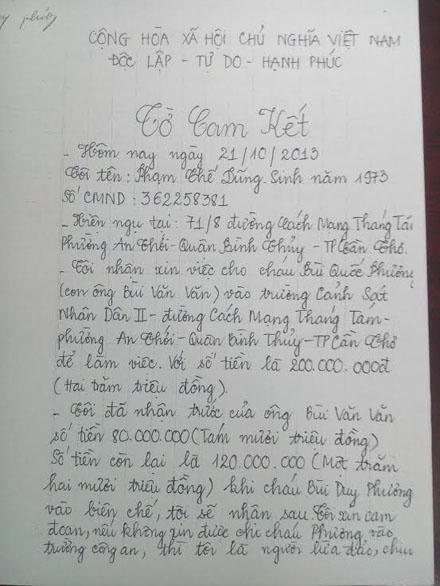 phúng
CỘNG HÒA XÃ HỘI CHỦ NGHĨA VIỆT NAM
ĐỘC LẬP - TỰ DO - HẠNH PHÚC
Tờ Cam Kết
- Hôm nay ngày 21/10/2013
Tôi tên: Phạm Thế Dũng Sinh năm 1973
Số CMND: 362258381
- Hiện ngụ tại: 71/8 đường Cách Mạng Tháng Tá
Phường An Thới - Quận Bình Thủy - TP Cần Thơ.
- Tôi nhận xin việc cho cháu Bùi Quốc Phương
(con ông Bùi Văn Văn) vào trường Cảnh Sát
Nhân Dân II - đường Cách Mạng Tháng Tám -
phường An Thới - Quận Bình Thủy - TP Cần Thơ
để làm việc. Với số tiền là 200.000.000đ
(Hai trăm triệu đồng).
- Tôi đã nhận trước của ông Bùi Văn Văn
số tiền 80.000.000 (Tám mươi triệu đồng)
Số tiền còn lại là 120.000.000 (Một trăm
hai mươi triệu đồng) khi cháu Bùi Duy Phương
vào biên chế, tôi sẽ nhận sau Tôi xin cam
đoan, nếu không xin được cho cháu Phương vào
trường công an, thì tôi là người lừa đảo, chịu